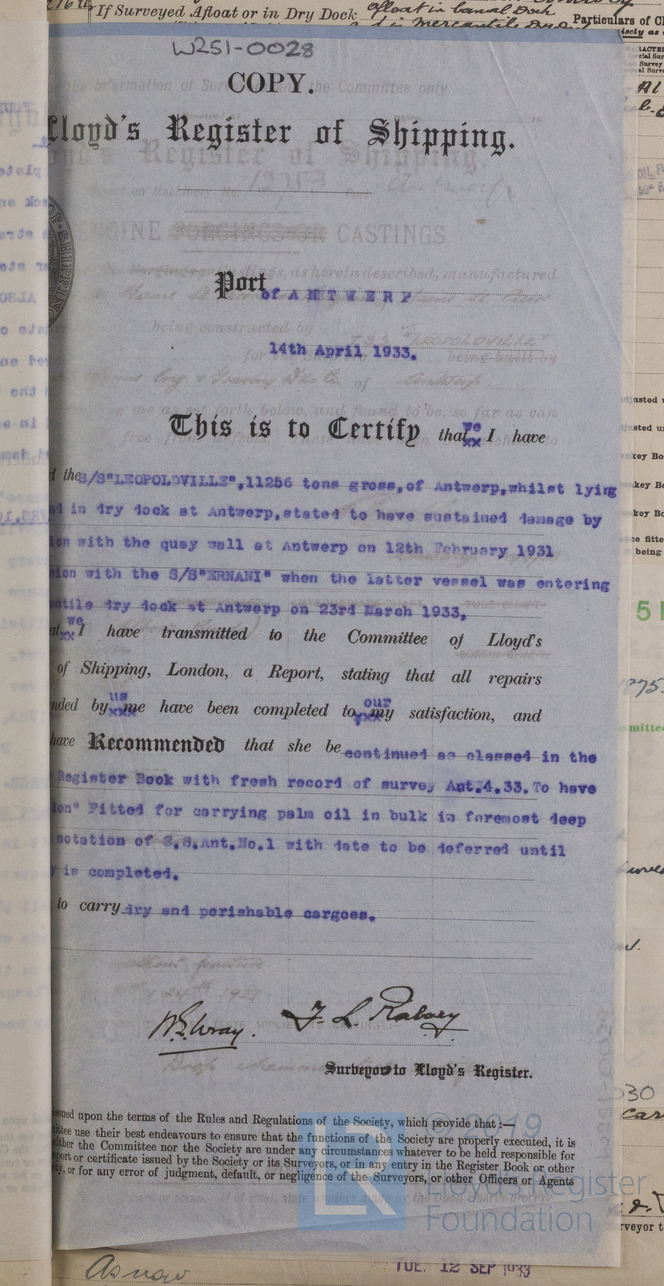 If Surveyed Afloat or in Dry Dock afloat in Canal Dock
Particulars of Cl
W251-0028
COPY.
Lloyd's Register of Shipping.
Port of ANTWERP
14th April 1933.
This is to Certify that we I have
d the S/S"LEOPOLDVILLE",11256 tons gross,of Antwerp,whilst lying
d in dry dock at Antwerp,stated to have sustained damage by
ion with the quay wall at Antwerp on 12th February 1931
sion with the S/S"ERNANI" when the latter vessel was entering
ntile dry dock at Antwerp on 23rd March 1933,
at we I have transmitted to the Committee of Lloyd's
of Shipping, London, a Report, stating that all repairs
nded by us me have been completed to our my satisfaction, and
have Recommended that she be continued as classed in the
Register Book with fresh record of survey Ant.4.33. To have
ion" Fitted for carrying palm oil in bulk in foremost deep
notation of S.S.Ant.No.1 with date to be deferred until
y is completed.
to carry dry and perishable cargoes.
Surveyor to Lloyd's Register.
ssued upon the terms of the Rules and Regulations of the Society, which provide that :—
ittee use their best endeavours to ensure that the functions of the Society are properly executed, it is
either the Committee nor the Society are under any circumstances whatever to be held responsible for
port or certificate issued by the Society or its Surveyors, or in any entry in the Register Book or other
ty, or for any error of judgment, default, or negligence of the Surveyors, or other Officers or Agents
© 2019
Lloyd's Register
Foundation
As now
TUE. 12 SEP 1933